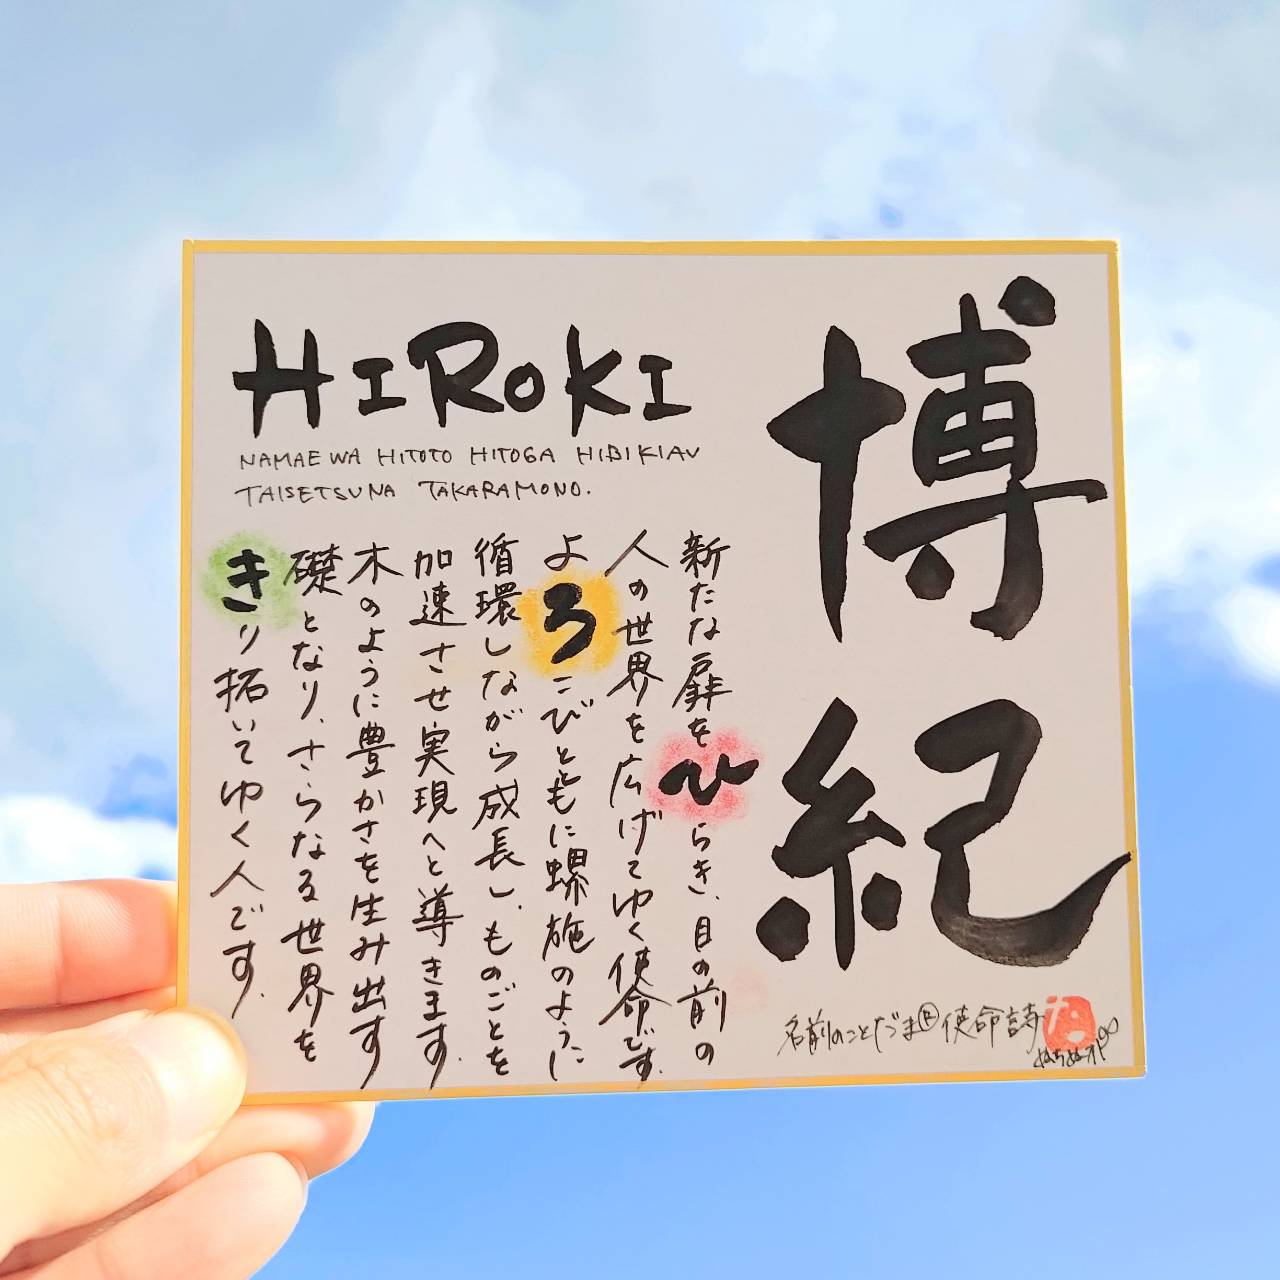 博紀
HIROKI
NAMAE WA HITOTO HITOGA HIBIKIAU
TAISETSUNA TAKARAMONO.
新たな扉をひらき、目の前の
人の世界を広げてゆく使命です。
よろこびとともに螺施のように
循環しながら成長し、ものごとを
加速させ実現へと導きます。
木のように豊かさを生み出す
礎となり、さらなる世界を
きり拓いてゆく人です。
名前のことだま®使命詩